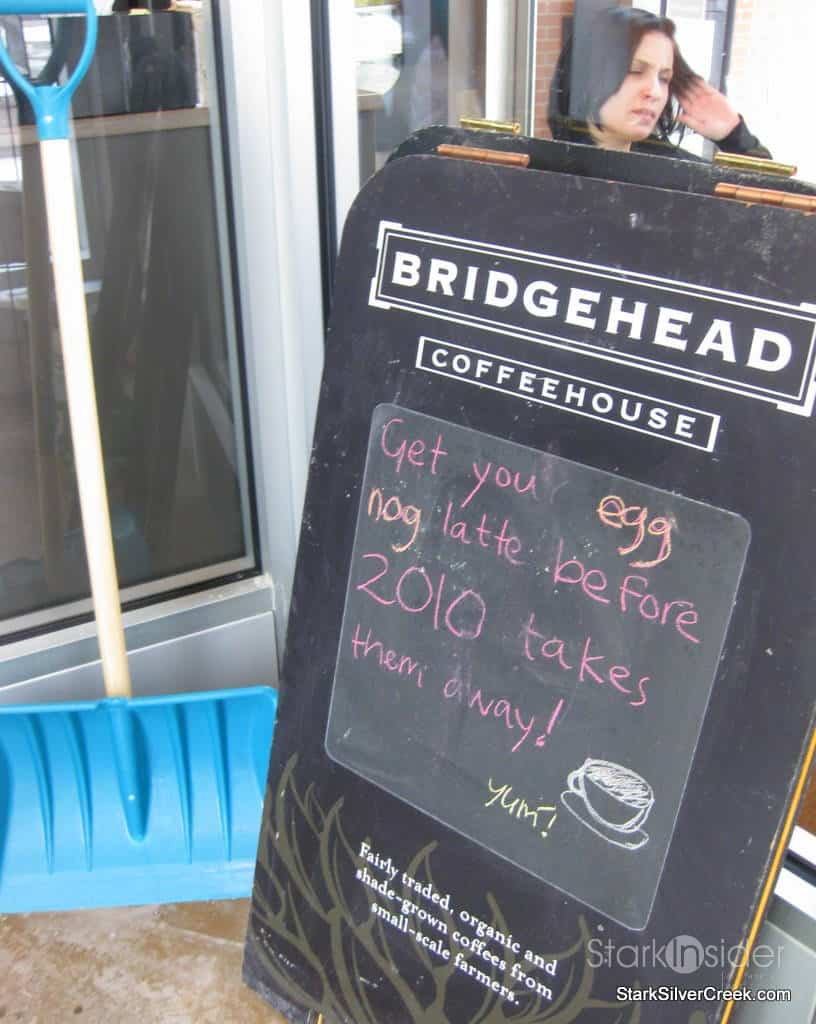 BRIDGEHEAD
COFFEEHOUSE
Get you egg
nog latte before
2010 takes
them away!
yum!
Fairly traded, organic and
shade-grown coffees from
small-scale farmers.
StarkInsider
StarkSilverCreek.com